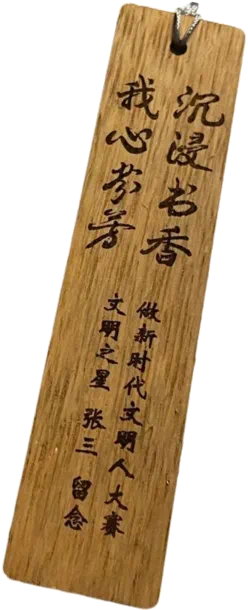 沉浸书香
我心芬芳
做新时代文明人大赛
文明之星 张三 留念